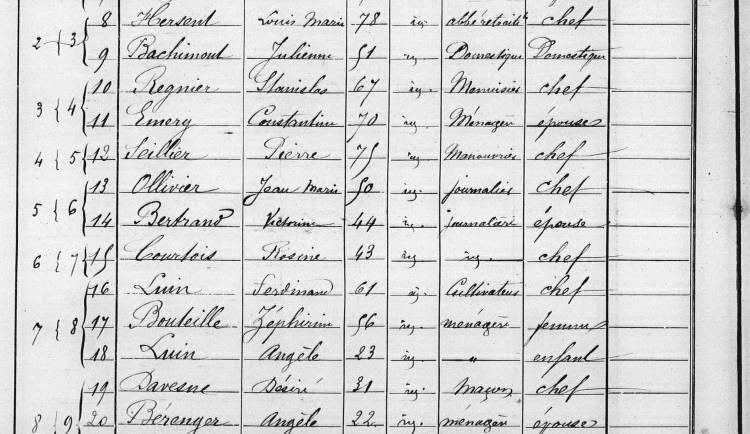 8 Hersent Louis Marie 78 id. abbé retraité chef
2 3
9 Bachimont Julienne 51 id. Domestique Domestique
10 Regnier Stanislas 67 id. Menuisier chef
3 4
11 Emery Constantine 70 id. Ménagère épouse
4 5 12 Seillier Pierre 75 id. Manouvrier chef
13 Ollivier Jean Marie 50 id. journalier chef
5 6
14 Bertrand Victorine 44 id. journalière épouse
6 7 15 Courtois Rosine 43 id. id. chef
16 Luin Ferdinand 61 id. Cultivateur chef
7 8 17 Bouteille Zéphirine 56 id. ménagère femme
18 Luin Angèle 23 id. " enfant
19 Davesne Désiré 31 id. Maçon chef
8 9 20 Bérenger Angèle 22 id. ménagère épouse